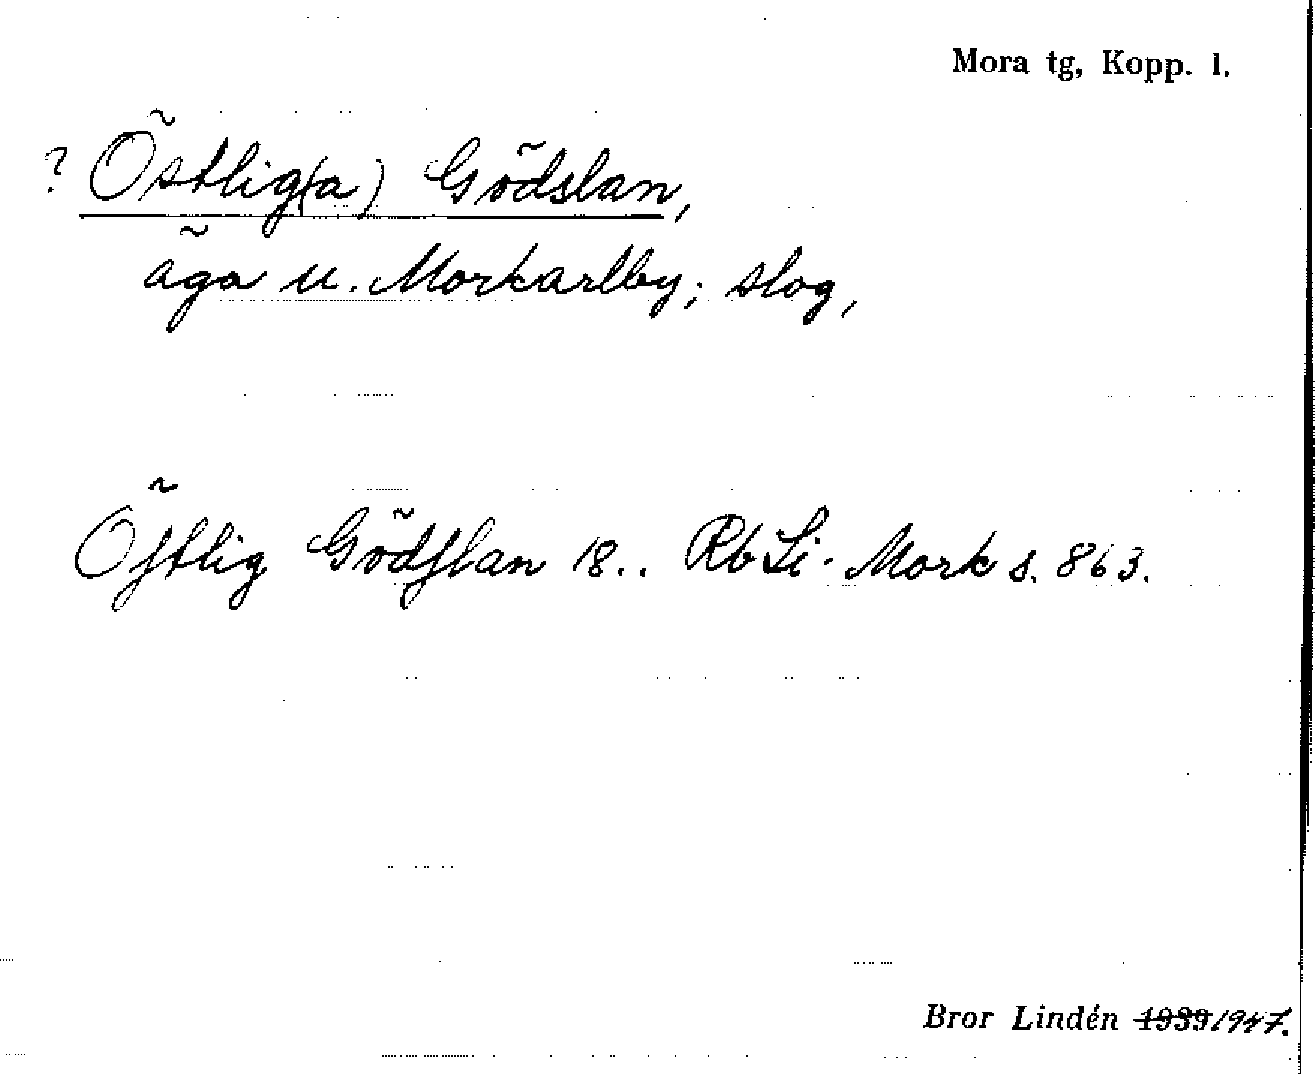 Mora tg, Kopp. l.
? Östlig(a) Gödslan,
äga u. Morkarlby; slog,
Öſtlig Gödſlan 18.. Rb Li. Mork s. 863.
Bror Lindén 1939 1947.